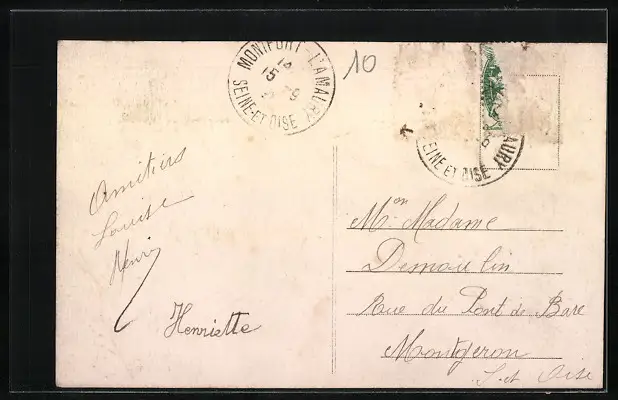 MONTFORT-L'AMAURY
14
15
9
SEINE-ET-OISE
10
AURY
EINE ET OISE
Amitiés
Louise
Henri
Henriette
Mon Madame
Demoulin
Rue du Pont de Bare
Montgeron
S. et Oise